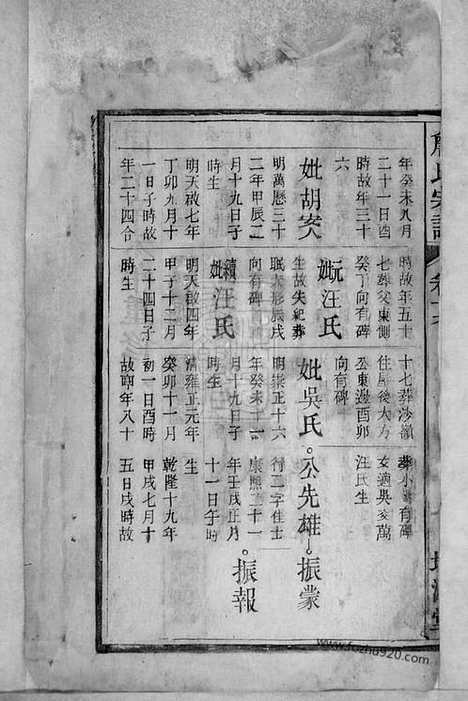 氏宗譜
年癸未八月
二十一日酉
時故年三十
六
妣胡安人
明萬歷三十
二年甲辰二
月十九日子
時生
明天啟七年
丁卯九月十
一日子時故
年二十四合
時故年五十
七葬父東側
癸丁向有碑
元妣汪氏
生故失紀葬
大形辰戌
向有碑
繼妣汪氏
明天啟四年
甲子十二月
二十四日子
時生
十七葬沙嶺
住屋後大方
公東邊酉卯
向有碑
妣吳氏
明崇正十六
年癸未十一
月十九日子
時生
清雍正元年
癸卯十一月
初一日酉時
故享年八十
葬小 有碑
女適吳文萬
汪氏生
公先雄 振蒙
行二字佳士
康熙二十一
年壬戌正月
十一日子時
振報
乾隆十九年
甲戌七月十
五日戌時故
www.fozhu920.com